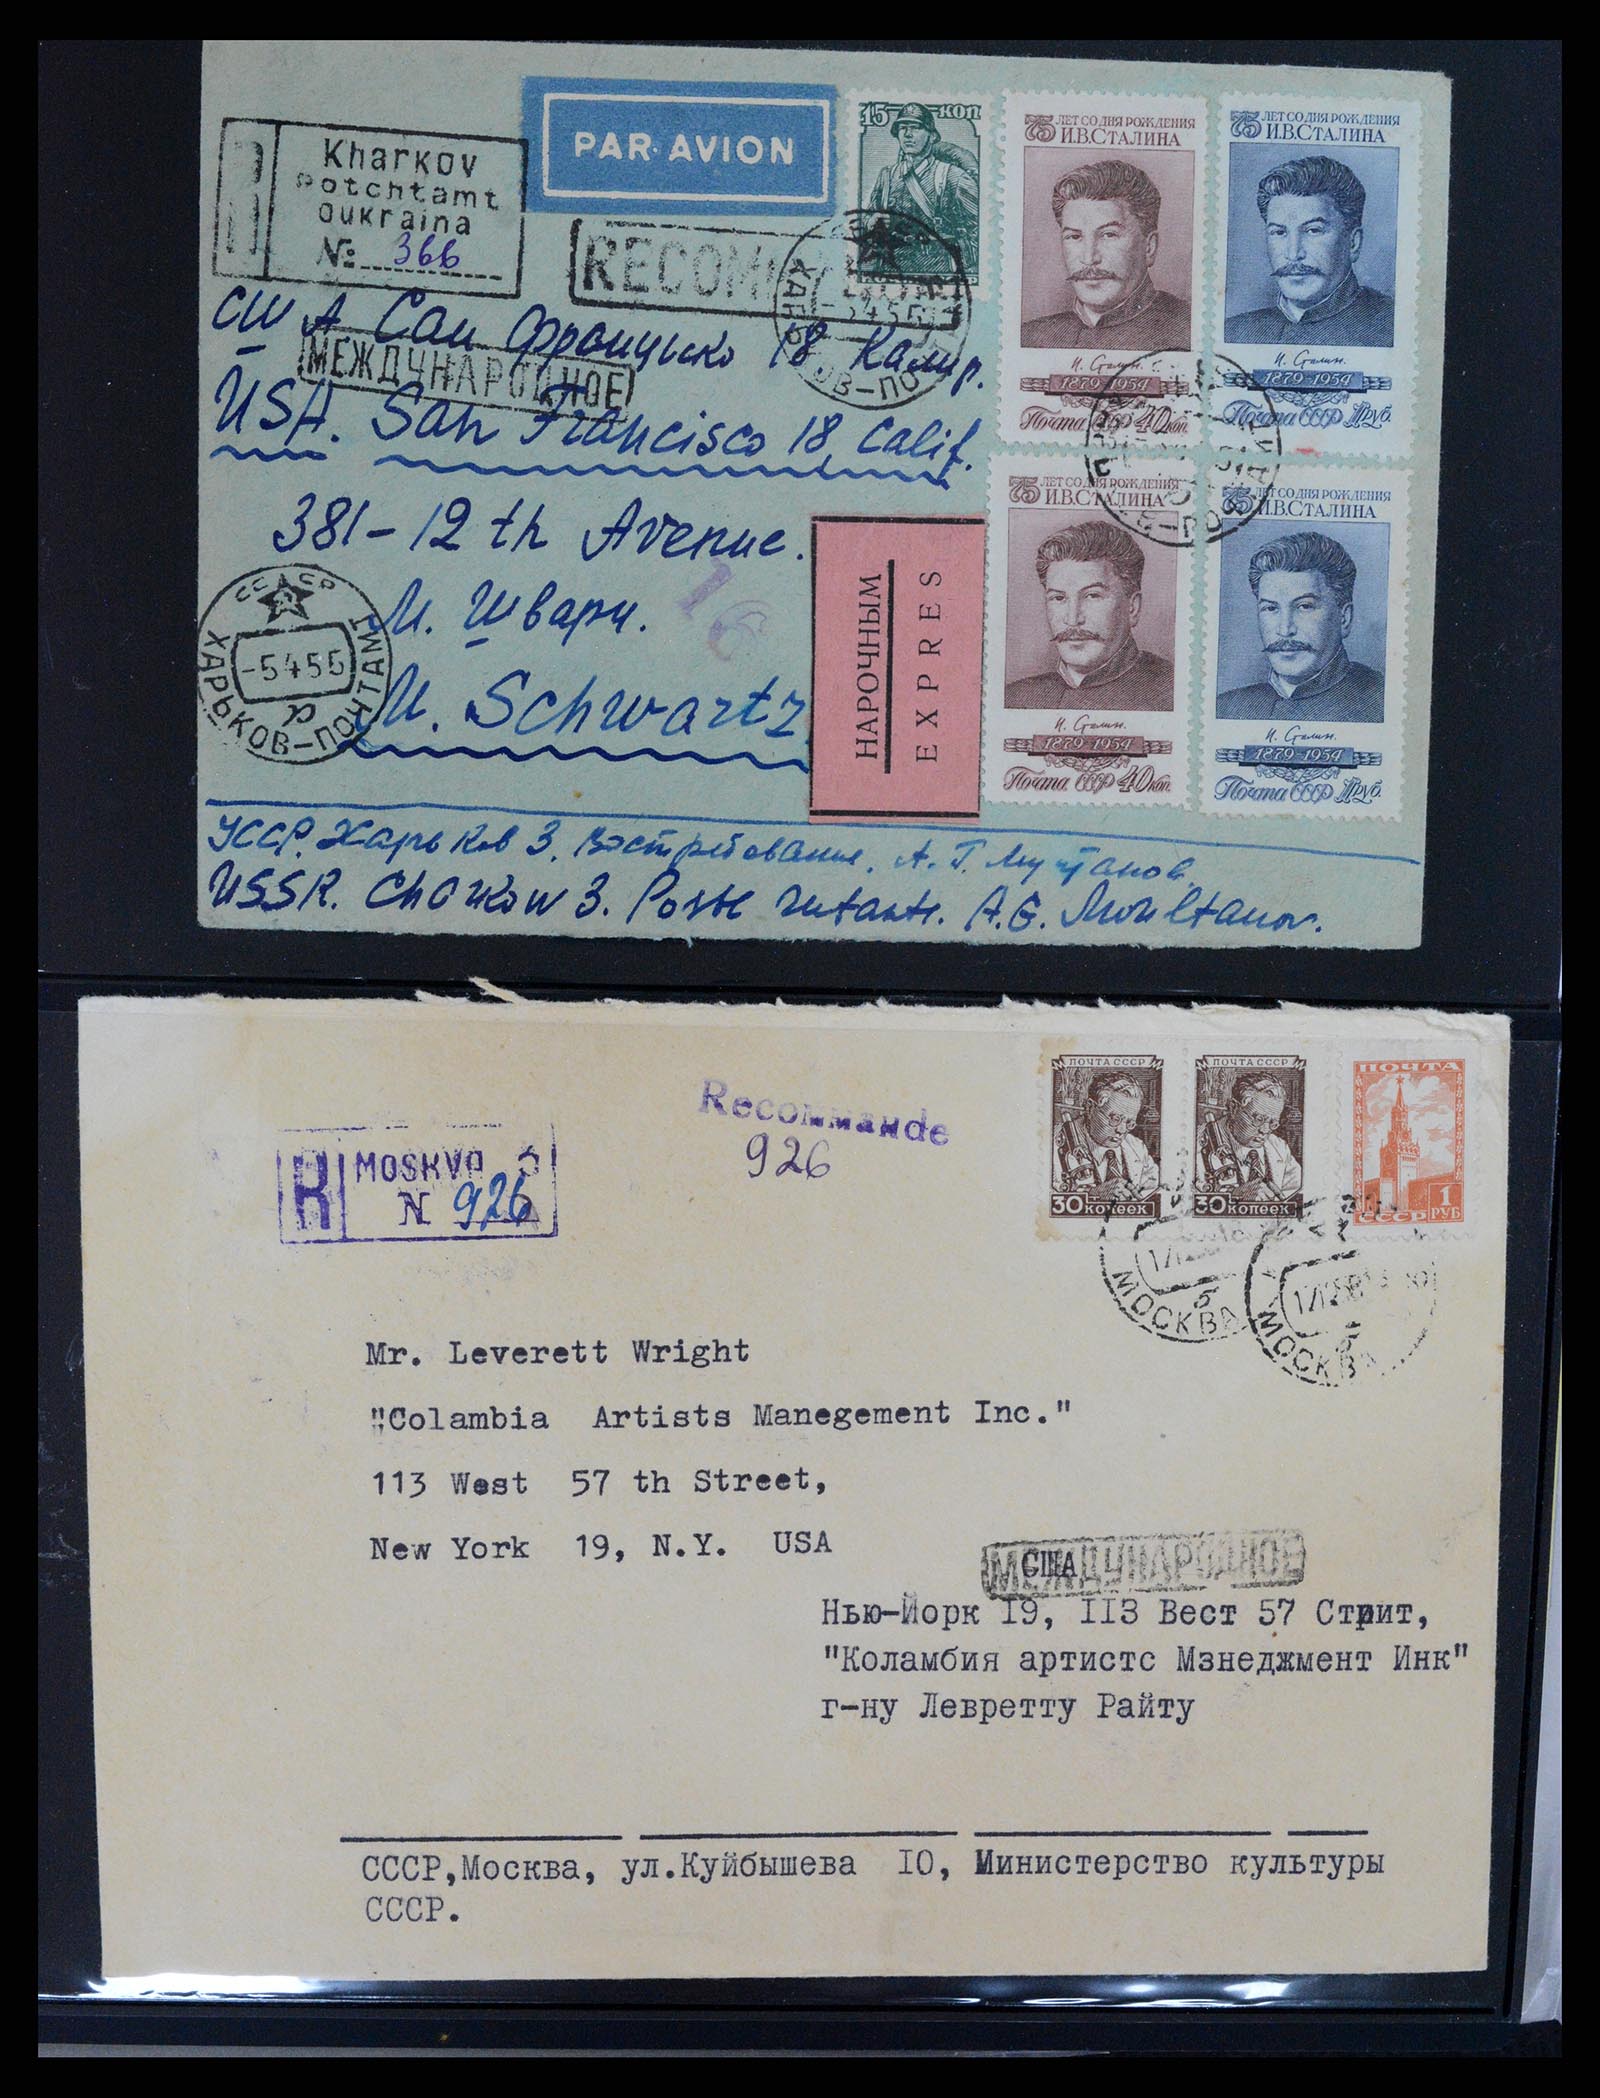 Kharkov
potchtamt
Oukraina
№ 366
PAR AVION
RECOM
МЕЖДУНАРОДНОЕ
15 КОП
75 ЛЕТ СО ДНЯ РОЖДЕНИЯ
И.В.СТАЛИНА
И. Сталин.
1879-1954
Почта СССР 40 коп.
75 ЛЕТ СО ДНЯ РОЖДЕНИЯ
И.В.СТАЛИНА
И. Сталин.
1879-1954
Почта СССР 1 руб.
75 ЛЕТ СО ДНЯ РОЖДЕНИЯ
И.В.СТАЛИНА
И. Сталин.
1879-1954
Почта СССР 40 коп.
75 ЛЕТ СО ДНЯ РОЖДЕНИЯ
И.В.СТАЛИНА
И. Сталин.
1879-1954
Почта СССР 1 руб.
США Сан Франциско 18 Калиф.
USA. San Francisco 18, Calif.
381-12 th Avenue.
М. Шварц.
M. Schwartz
16
НАРОЧНЫМ
EXPRES
СССР
-5 4 55
ХАРЬКОВ-ПОЧТАМТ
УССР. Харьков 3. Востребование. А.Г. Мультанов.
USSR. Charkow 3. Poste restante. A.G. Moultanov.
R MOSKVA
N 926
Recommande
926
ПОЧТА СССР
30 копеек
ПОЧТА СССР
30 копеек
ПОЧТА
1 РУБ
СССР
МОСКВА
б
МОСКВА
б
Mr. Leverett Wright
"Colambia Artists Manegement Inc."
113 West 57 th Street,
New York 19, N.Y. USA
США
МЕЖДУНАРОДНОЕ
Нью-Йорк I9, II3 Вест 57 Стрит,
"Коламбия артистс Мэнеджмент Инк"
г-ну Левретту Райту
СССР,Москва, ул.Куйбышева IO, Министерство культуры
СССР.